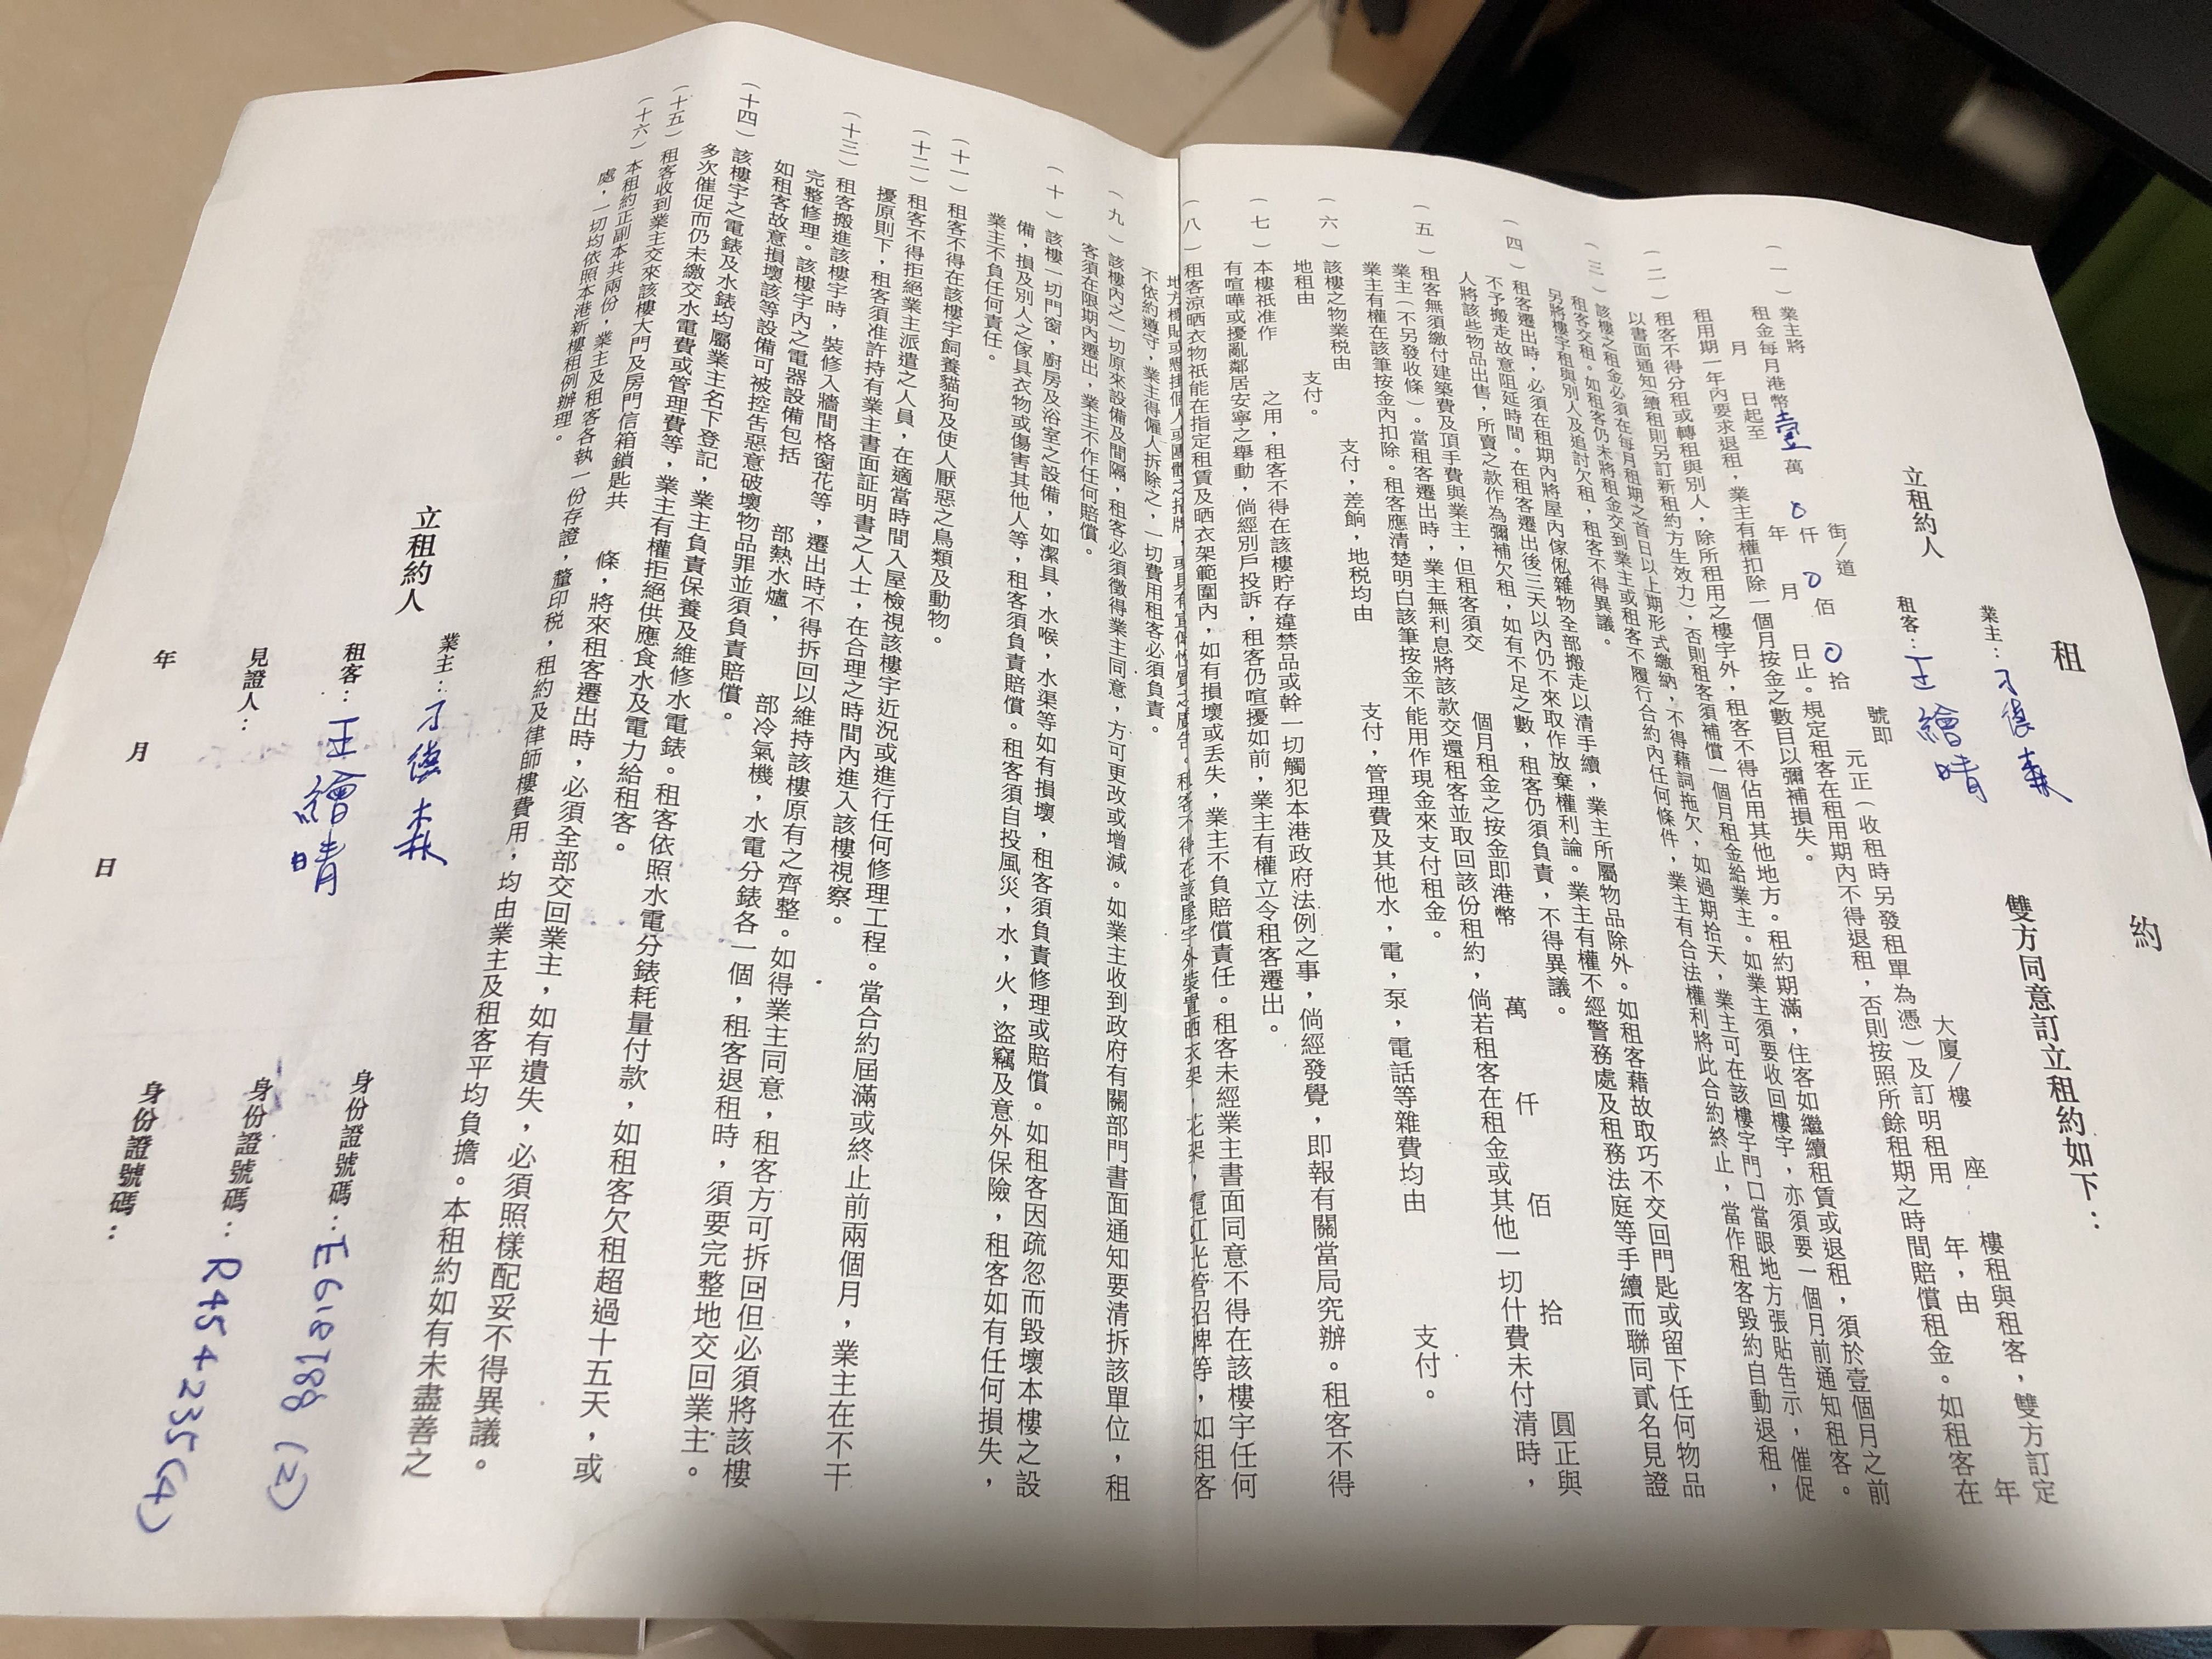 租 約
立租約人 業主：刁德森 雙方同意訂立租約如下：
租客：王繪晴
（一）業主將 街/道 號即 大廈/樓 座 樓租與租客，雙方訂定
租金每月港幣壹萬0仟0佰0拾 元正（收租時另發租單為憑）及訂明租用 年，由 年
月 日起至 年 月 日止。規定租客在租用期內不得退租，否則按照所餘租期之時間賠償租金。如租客在
租用期一年內要求退租，業主有權扣除一個月按金之數目以彌補損失。
（二）租客不得分租或轉租與別人，除所租用之樓宇外，租客不得佔用其他地方。租約期滿，住客如繼續租賃或退租，須於壹個月之前
以書面通知(續租則另訂新租約方生效力)，否則租客須補償一個月租金給業主。如業主須要收回樓宇，亦須要一個月前通知租客。
（三）該樓之租金必須在每月租期之首日以上期形式繳納，不得藉詞拖欠，如過期拾天，業主可在該樓宇門口當眼地方張貼告示，催促
租客交租。如租客仍未將租金交到業主或租客不履行合約內任何條件，業主有合法權利將此合約終止，當作租客毀約自動退租，
另將樓宇租與別人及追討欠租，租客不得異議。
（四）租客遷出時，必須在租期內將屋內傢俬雜物全部搬走以清手續，業主所屬物品除外。如租客藉故取巧不交回門匙或留下任何物品
不予搬走故意阻延時間。在租客遷出後三天以內仍不來取作放棄權利論。業主有權不經警務處及租務法庭等手續而聯同貳名見證
人將該些物品出售，所賣之款作為彌補欠租，如有不足之數，租客仍須負責，不得異議。
（五）租客無須繳付建築費及頂手費與業主，但租客須交 個月租金之按金即港幣 萬 仟 佰 拾 圓正與
業主（不另發收條）。當租客遷出時，業主無利息將該款交還租客並取回該份租約，倘若租客在租金或其他一切什費未付清時，
業主有權在該筆按金內扣除。租客應清楚明白該筆按金不能用作現金來支付租金。
（六）該樓之物業税由 支付，差餉，地税均由 支付，管理費及其他水，電，泵，電話等雜費均由 支付。
地租由 支付。
（七）本樓衹准作 之用，租客不得在該樓貯存違禁品或幹一切觸犯本港政府法例之事，倘經發覺，即報有關當局究辦。租客不得
有喧嘩或擾亂鄰居安寧之舉動，倘經別戶投訴，租客仍喧擾如前，業主有權立令租客遷出。
（八）租客涼晒衣物衹能在指定租賃及晒衣架範圍內，如有損壞或丟失，業主不負賠償責任。租客未經業主書面同意不得在該樓宇任何
地方標貼或懸掛個人或團體之招牌，或具有宣傳性質之廣告。租客不得在該屋宇外裝置晒衣架，花架，霓虹光管招牌等，如租客
不依約遵守，業主得僱人拆除之，一切費用租客必須負責。
（九）該樓內之一切原來設備及間隔，租客必須徵得業主同意，方可更改或增減。如業主收到政府有關部門書面通知要清拆該單位，租
客須在限期內遷出，業主不作任何賠償。
（十）該樓一切門窗，廚房及浴室之設備，如潔具，水喉，水渠等如有損壞，租客須負責修理或賠償。如租客因疏忽而毀壞本樓之設
備，損及別人之傢具衣物或傷害其他人等，租客須負責賠償。租客須自投風災，水，火，盜竊及意外保險，租客如有任何損失，
業主不負任何責任。
（十一）租客不得在該樓宇飼養貓狗及使人厭惡之鳥類及動物。
（十二）租客不得拒絕業主派遣之人員，在適當時間入屋檢視該樓宇近況或進行任何修理工程。當合約屆滿或終止前兩個月，業主在不干
擾原則下，租客須准許持有業主書面証明書之人士，在合理之時間內進入該樓視察。
（十三）租客搬進該樓宇時，裝修入牆間格窗花等，遷出時不得拆回以維持該樓原有之齊整。如得業主同意，租客方可拆回但必須將該樓
完整修理。該樓宇內之電器設備包括 部熱水爐， 部冷氣機，水電分錶各一個，租客退租時，須要完整地交回業主。
如租客故意損壞該等設備可被控告惡意破壞物品罪並須負責賠償。
（十四）該樓宇之電錶及水錶均屬業主名下登記，業主負責保養及維修水電錶。租客依照水電分錶耗量付款，如租客欠租超過十五天，或
多次催促而仍未繳交水電費或管理費等，業主有權拒絕供應食水及電力給租客。
（十五）租客收到業主交來該樓大門及房門信箱鎖匙共 條，將來租客遷出時，必須全部交回業主，如有遺失，必須照樣配妥不得異議。
（十六）本租約正副本共兩份，業主及租客各執一份存證，釐印税，租約及律師樓費用，均由業主及租客平均負擔。本租約如有未盡善之
處，一切均依照本港新樓租例辦理。
立租約人 業主：刁德森 身份證號碼：
租客：王繪晴 身份證號碼：R454235(4)
見證人： 身份證號碼：
年 月 日